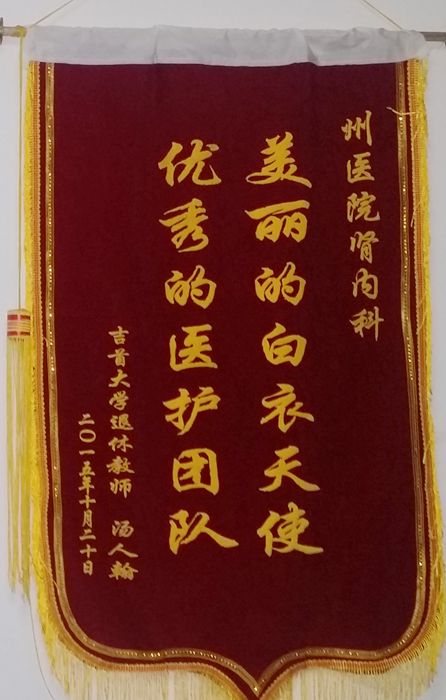 州医院肾内科
美丽的白衣天使
优秀的医护团队
吉首大学退休教师 汤人翰
二〇一五年十月二十日